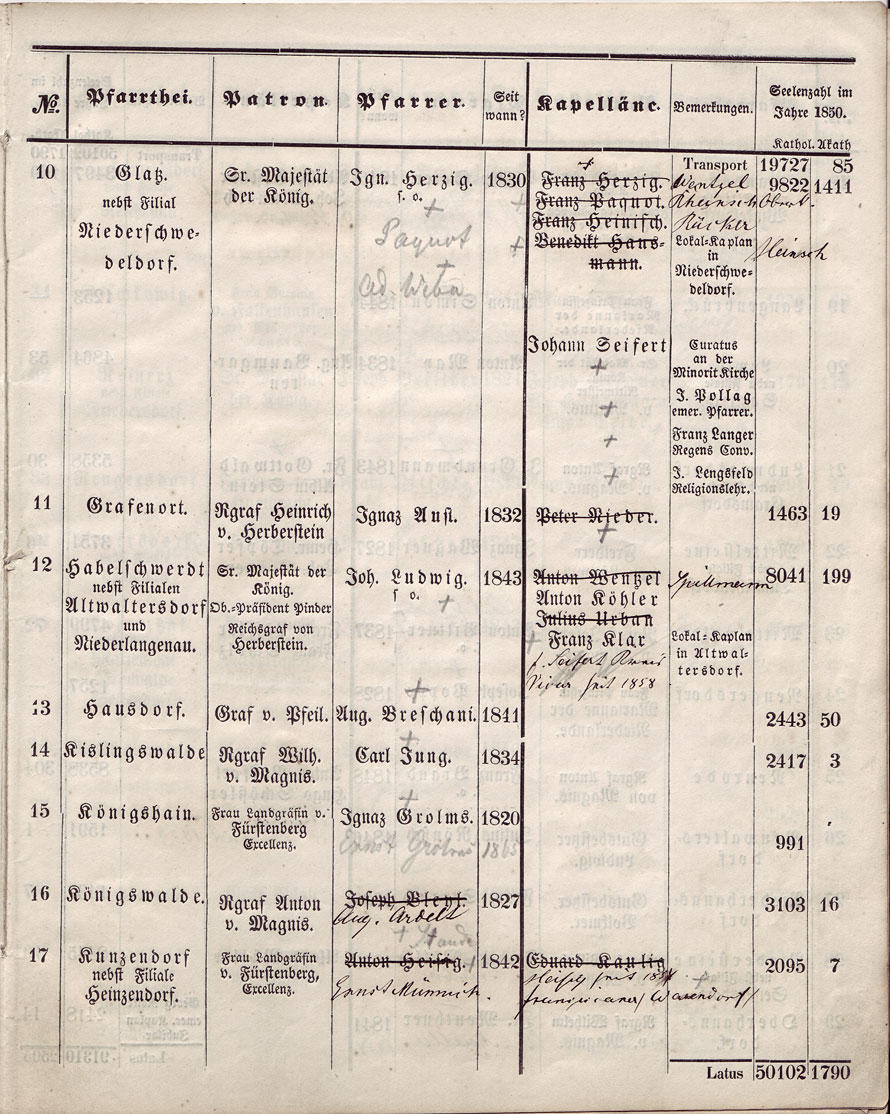 No. Pfarrthei. Patron. Pfarrer. Seit wann? Kapelläne. Bemerkungen. Seelenzahl im Jahre 1850.
Kathol. Akath
Transport 19727 85
10 Glatz. Sr. Majestät Ign. Herzig. 1830 Franz Herzig. Wentzel 9822 1411
nebst Filial der König. s. o. Franz Paquot. Rheinsch Obert.
Niederschwe- Paquot Franz Heinisch. Rücker
deldorf. Benedikt Haus- Lokal-Kaplan Heinsch
mann. in
Ad. Weba Niederschwe-
deldorf.
Johann Seifert Curatus
an der
Minorit Kirche
J. Pollag
emer. Pfarrer.
Franz Langer
Regens Conv.
J. Lengsfeld
Religionslehr.
11 Grafenort. Rgraf Heinrich Ignaz Aust. 1832 Peter Nieder. 1463 19
v. Herberstein
12 Habelschwerdt Sr. Majestät der Joh. Ludwig. 1843 Anton Wentzel 8041 199
nebst Filialen König. s o. Anton Köhler
Altwaltersdorf Ob.-Präsident Pinder Julius Urban
und Reichsgraf von Franz Klar Lokal-Kaplan
Niederlangenau. Herberstein. in Altwal-
tersdorf.
Seifert
seit 1858
13 Hausdorf. Graf v. Pfeil. Aug. Breschani. 1841 2443 50
14 Kislingswalde Rgraf Wilh. Carl Jung. 1834 2417 3
v. Magnis.
15 Königshain. Frau Landgräfin v. Ignaz Grolms. 1820
Fürstenberg Ernst 1865 991
Excellenz.
16 Königswalde. Rgraf Anton Joseph Bleyl. 1827 3103 16
v. Magnis. Aug. Ardelt
17 Kunzendorf Frau Landgräfin Anton Heisig. 1842 Eduard Kaulig 2095 7
nebst Filiale v. Fürstenberg, seit
Heinzendorf. Excellenz. Ernst Münnich.
Latus 50102 1790